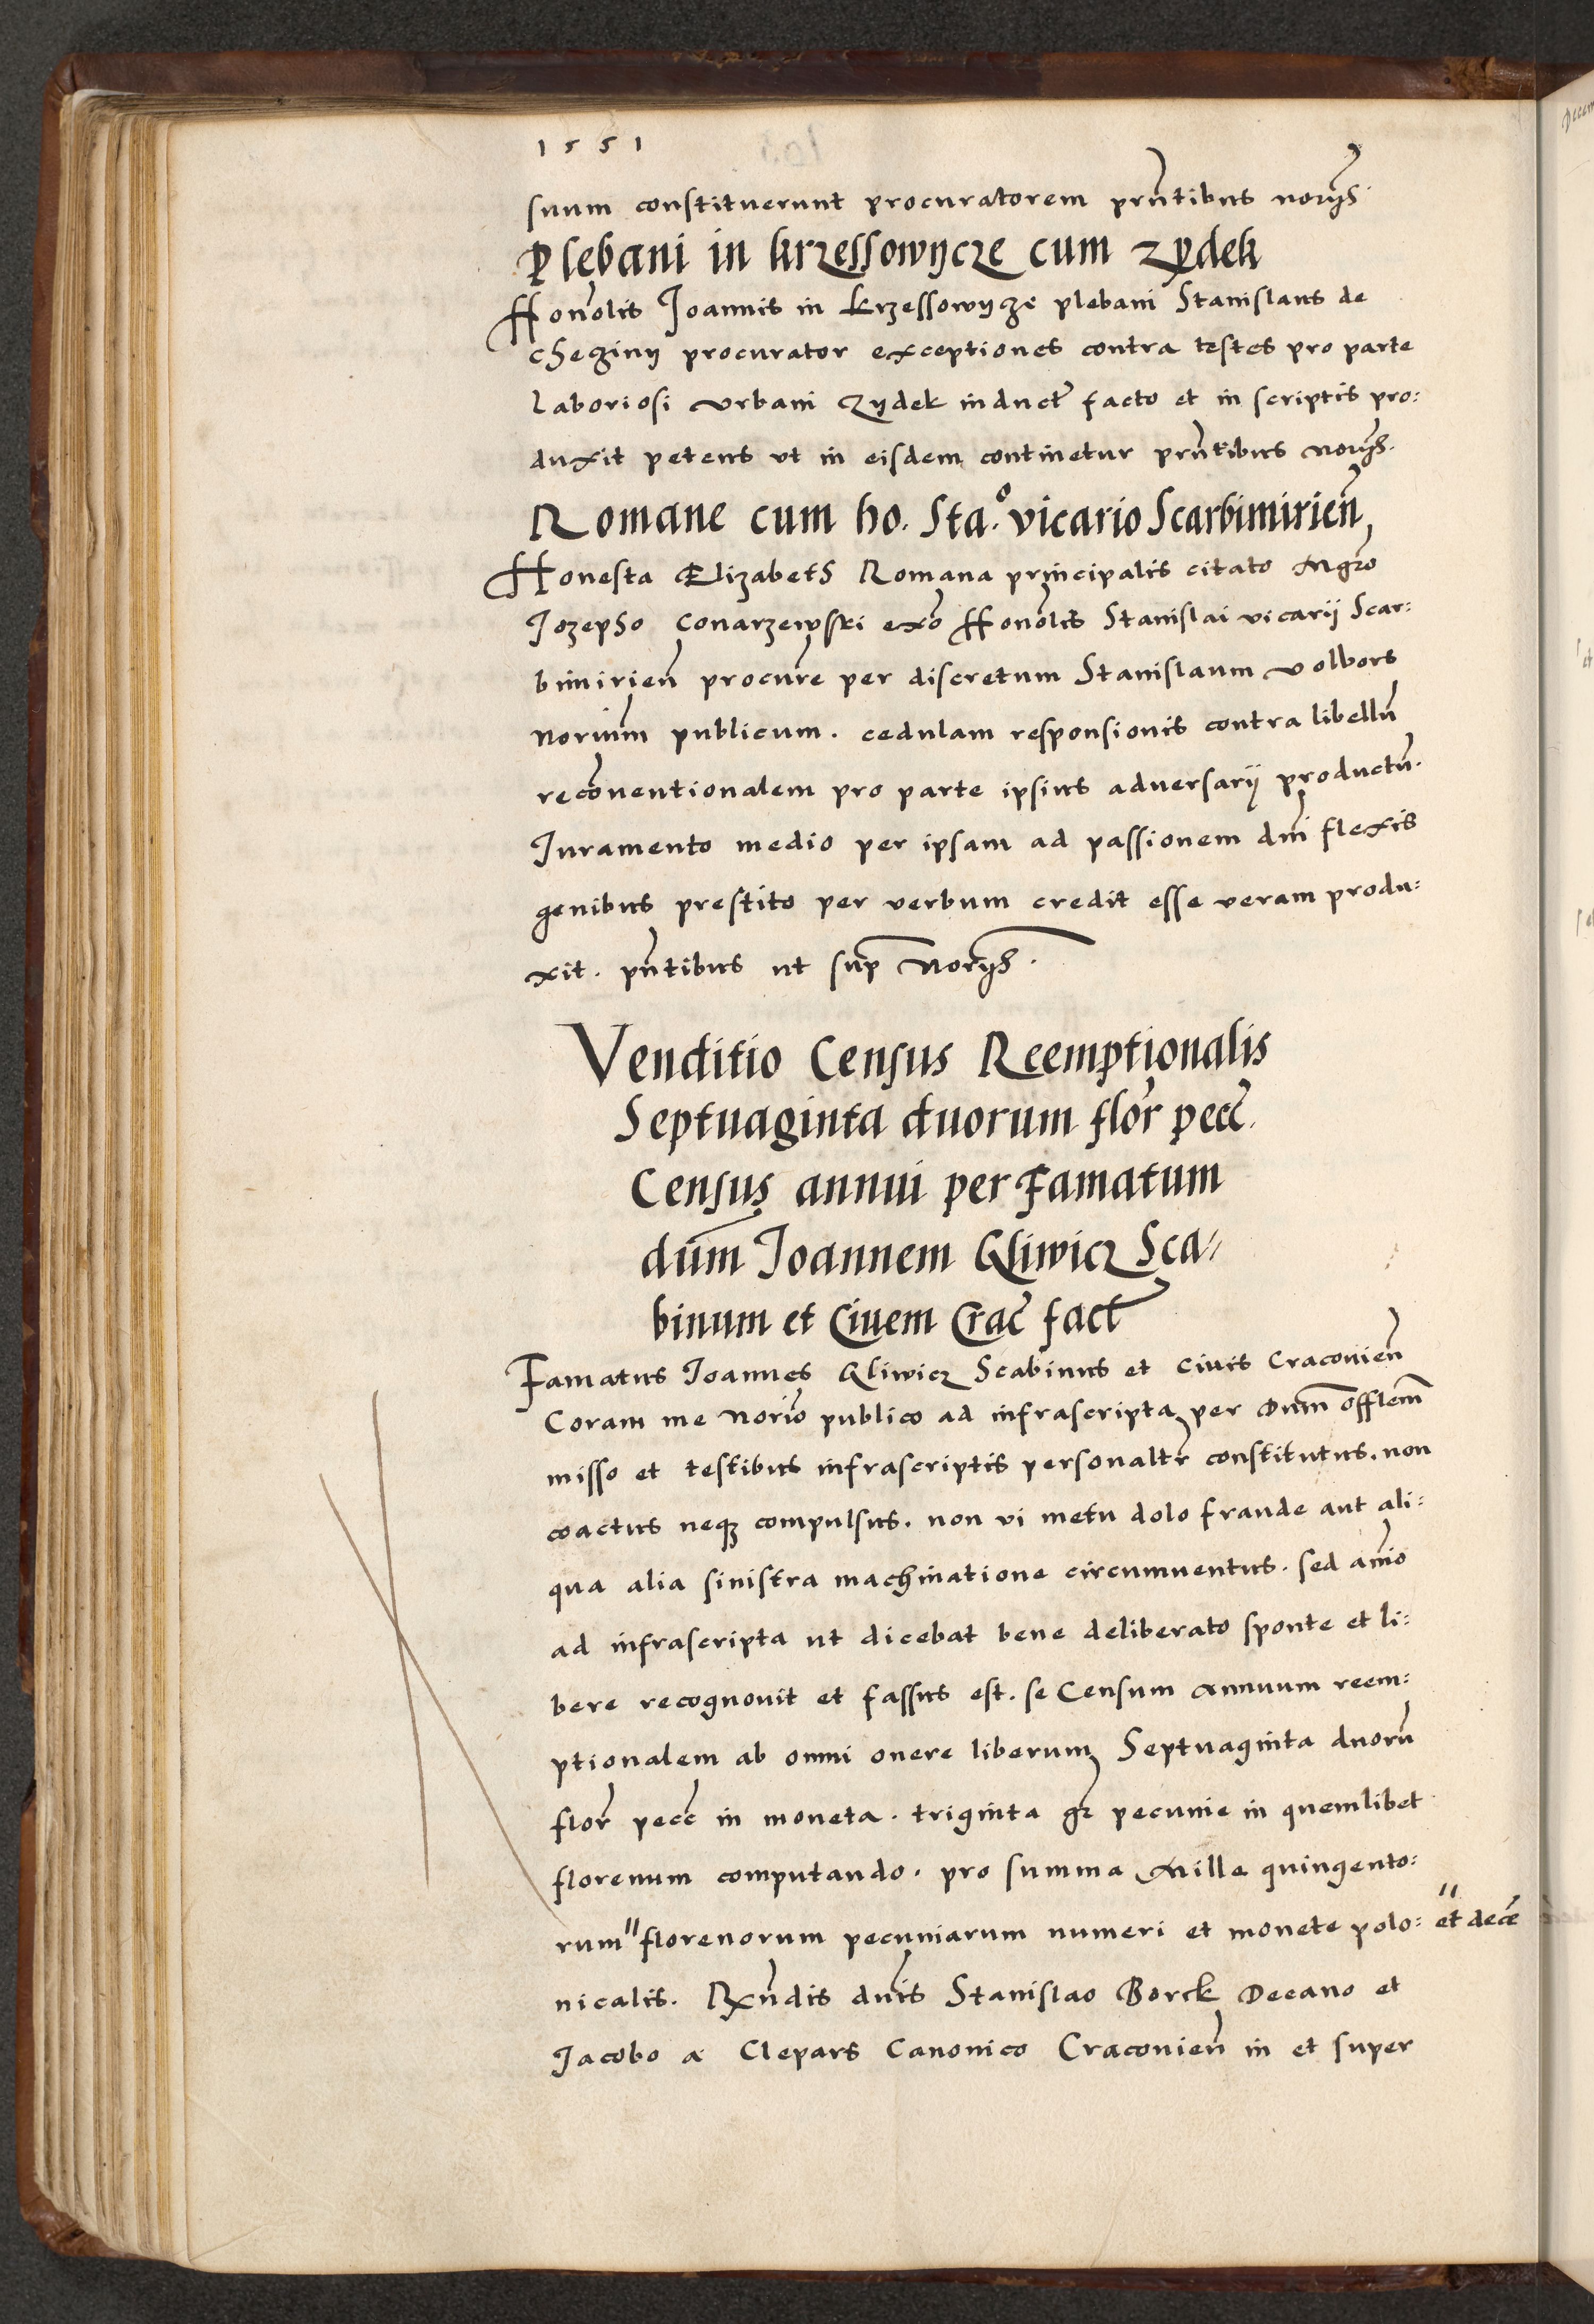 1551
suum constituerunt procuratorem prn̄tibus norijs
Plebani in krzessowycze cum zydek
Honōlis Joannis in Krzessowycze plebani Stanislaus de
cheginy procurator exceptiones contra testes pro parte
Laboriosi Vrbani Zydek induct̄ facto et in scriptis pro:
duxit petens vt in eisdem continetur prn̄tibus norijs.
Romane cum ho. Sta.o vicario Scarbimirien̄
Honesta Elizabeth Romana principalis citato Mgrō
Jozepho Conarzewski exō Honōlis Stanislai vicarij Scar:
bimirien̄ procurē per discretum Stanislaum Volbors
Norium̄ publicum. cedulam responsionis contra libellū
recōuentionalem pro parte ipsius aduersarij productū.
Juramento medio per ipsam ad passionem dni̅ flexis
genibus prestito per verbum credit esse veram produ:
xit. pn̄tibus ut sup̄ Norijs.
Venditio Census Reemptionalis
Septuaginta duorum flor̄ pecc̄.
Census annui per Famatum
dūm Joannem Gliwicz Sca⸗
binum et Ciuem Crac̄ fact̄
Famatus Joannes Gliwicz Scabinus et Ciuis Cracouien̄
Coram me Noriō publico ad infrascripta per Dūm offlem̄
misso et testibus infrascriptis personaltr̄ constitutus. non
coactus neqȝ compulsus. non vi metu dolo fraude aut ali:
qua alia sinistra machinatione circumuentus. sed anīo
ad infrascripta ut dicebat bene deliberato sponte et li:
bere recognouit et fassus est. se Censum Annuum reem:
ptionalem ab omni onere liberum Septuaginta duorū
flor̄ pecc̄ in moneta. triginta gr̄ pecunie in quemlibet
florenum computando. pro summa Mille quingento:
rum" florenorum pecuniarum numeri et monete polo: "et decē
nicalis. Rxn̄dis dn̄is Stanislao Borck Decano et
Jacobo a Clepars Canonico Cracouien̄ in et super